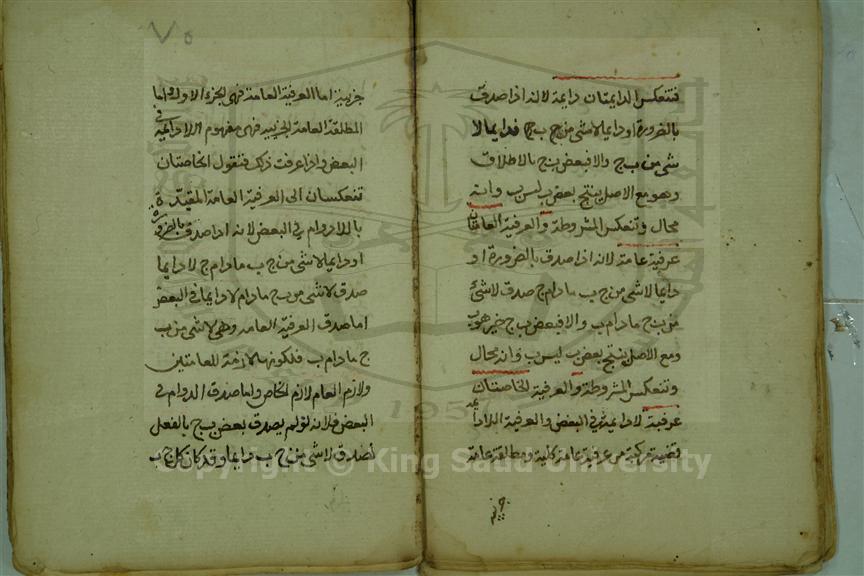 فتنعكس الدايمتان دايمة لانه اذا صدق
بالضرورة او دايما لا شئ من ج ب فدايما لا
شئ من ب ج والا فبعض ب ج بالاطلاق
وهو مع الاصل ينتج بعض ب ليس ب وانه
محال وتنعكس المشروطة والعرفية العامتان
عرفية عامة لانه اذا صدق بالضرورة او
دايما لا شئ من ج ب مادام ج صدق لا شئ
من ب ج مادام ب والا فبعض ب ج حين هو ب
ومع الاصل ينتج بعض ب ليس ب وانه محال
وتنعكس المشروطة والعرفية الخاصتان
عرفية لا دايمة في البعض والعرفية اللادايمة
قضية مركبة من عرفية عامة كلية ومطلقة عامة
جزييه
٧٥
جزيية اما العرفية العامة فهى الجزء الاول واما
المطلقة العامة الجزيية فهى مفهوم اللادايمة في
البعض واذا عرفت ذلك فنقول الخاصتان
تنعكسان الى العرفية العامة المقيدة
باللادوام في البعض لانه اذا صدق بالضرورة
او دايما لا شئ من ج ب مادام ج لا دايما
صدق لا شئ من ب ج مادام لا دايما في البعض
اما صدق العرفية العامه وهى لا شئ من ب
ج مادام ب فلكونها لازمة للعامتين
ولازم العام لازم الخاص واما صدق الدوام في
البعض فلانه لو لم يصدق بعض ب ج بالفعل
لصدق لا شئ من ج ب دايما وقد كان كل ج ب
1957
Copyright © King Saud University